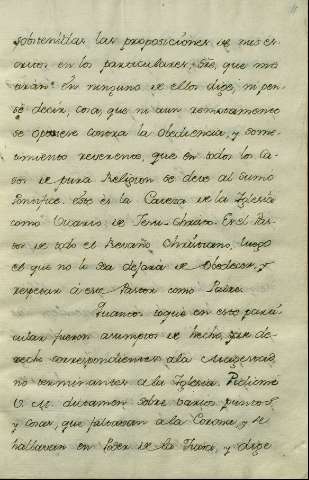 sobtenidas las proposiciones de mis es-
critos en los particulares, Sre, que mi
aran: en ninguno de ellos dige, ni pen-
sé decir, cosa, que ni aun remotamente
se oponese contra la obediencia, y some-
timiento reverente, que en todos los ca-
sos de pura Religion se deve al Sumo
Pontifice. Este es la Caveza de la Iglesia
como Vicario de Jesu-Christo. Es el Pas-
tor de todo el Revaño Christiano, luego
el que no le dejaria de Obedecer, y
respetar á este Pastor como Padre.
Quanto toqué en este parti-
cular fueron asumptos de hecho, y de de-
recho correspondientes á la Magestad,
no terminantes á la Iglesia. Pidiome
V. M. dictamen sobre varios puntos
y cosas, que faltavan a la Corona, y se
hallavan en Poder de la Tiara, y dige